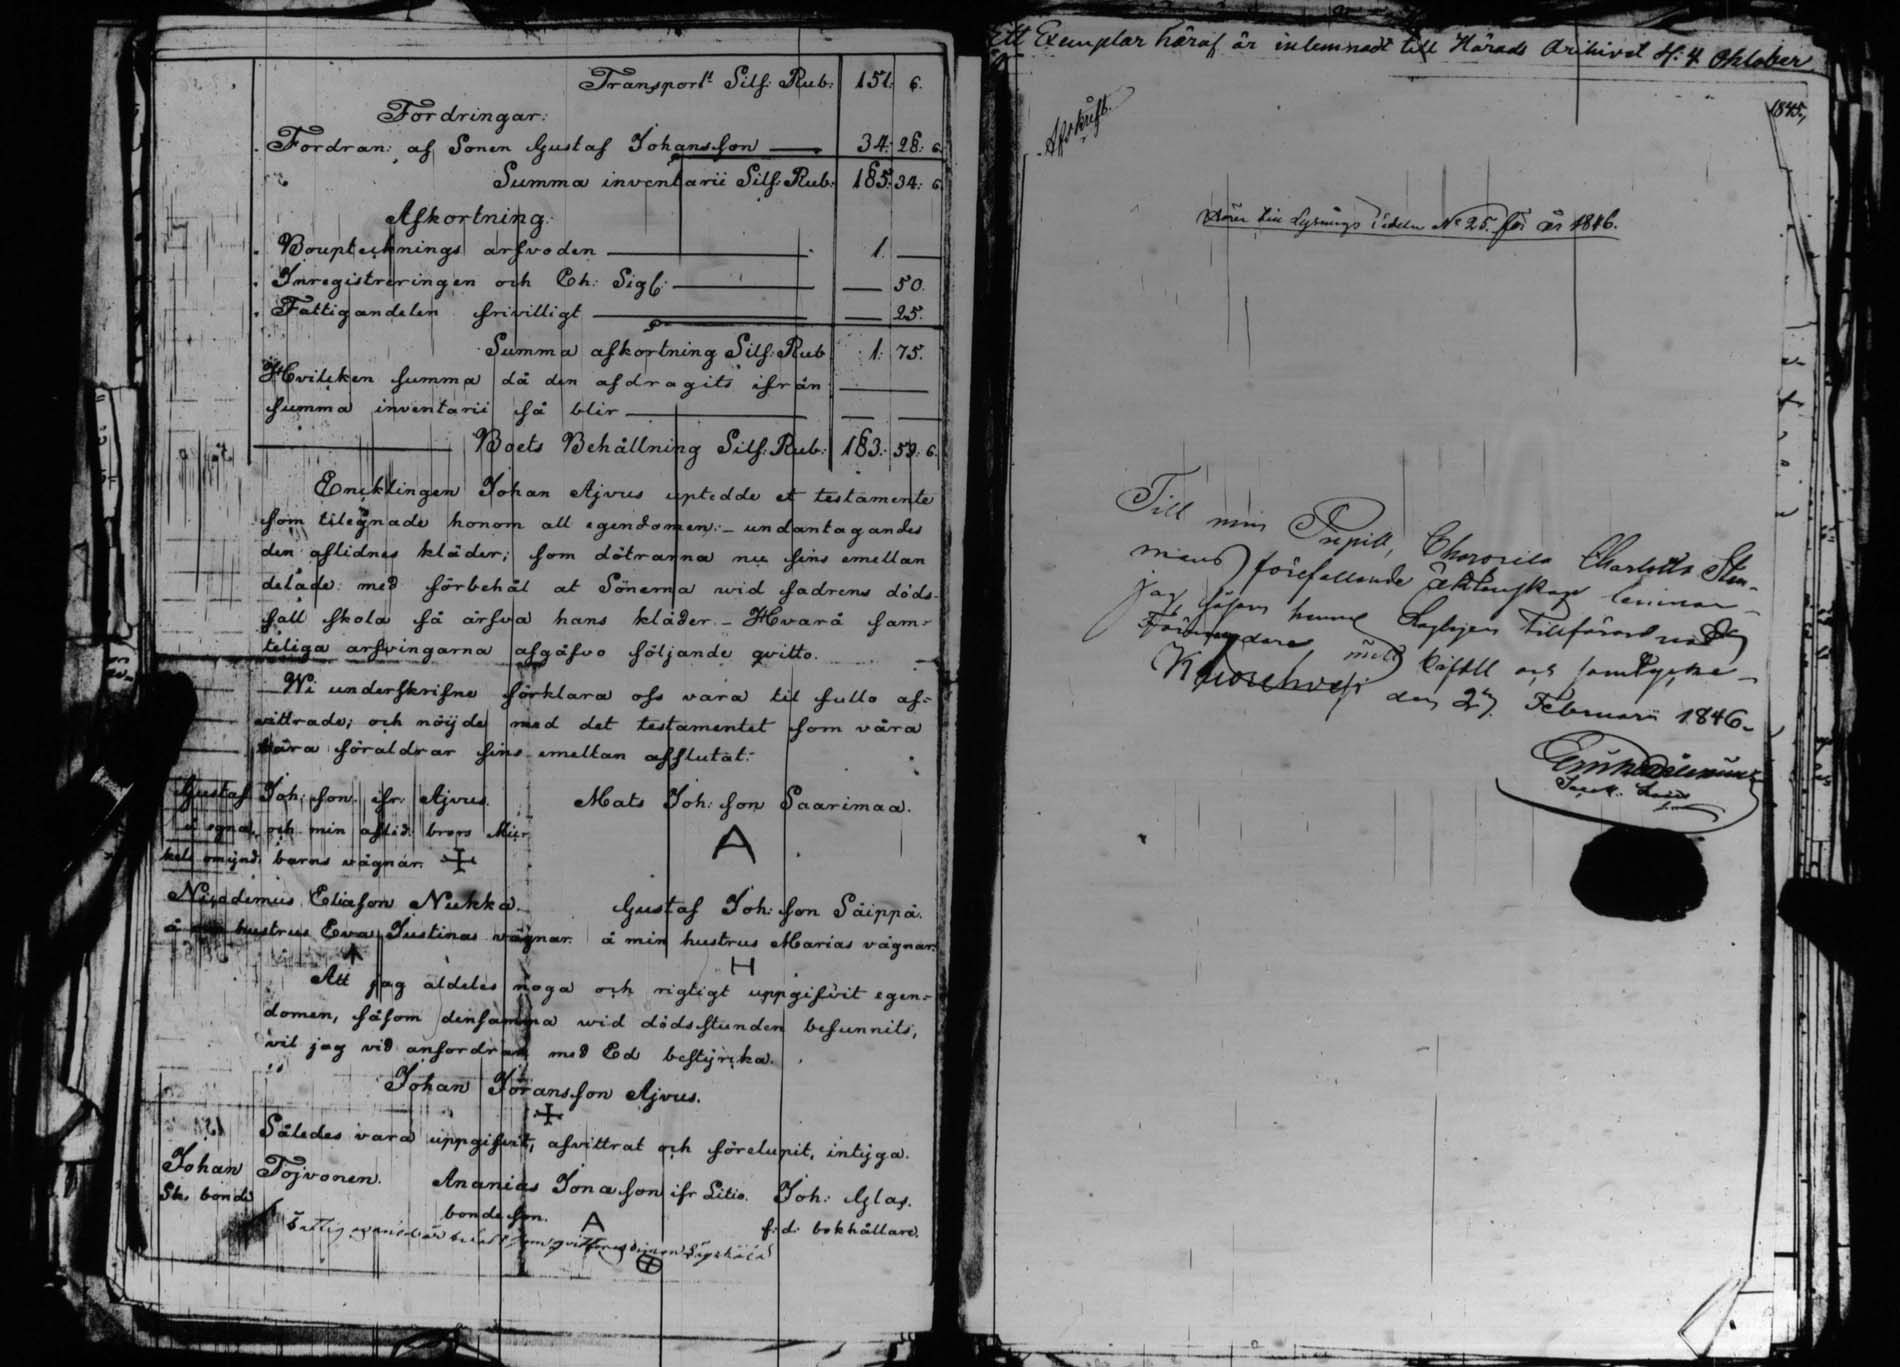 Transport Silf: Rub: 151. 6.
Fordringar:
Fordran: af Sonen Gustaf Johansson 34: 28: 6.
Summa inventarii Silf: Rub: 185: 34: 6.
Afkortning:
Boupteknings arfvoden 1.
Inregistreringen och Ch: Sig 50.
Fattigandelen frivilligt 25.
Summa afkortning Silf: Rub 1: 75.
Hvilcken summa då den afdragits ifrån
summa inventarii så blir
Boets Behållning Silf: Rub: 183: 59: 6.
Encklingen Johan Ajvus uptedde et testamente
som tilegnade honom all egendomen:- undantagandes
den aflidnes kläder; som döttrarna nu sins emellan
delade: med förbehål at Sönerna wid fadrens döds-
fall skola få ärfva hans kläder.- Hvarå sam-
teliga arfvingarna afgåfvo följande qvitto.
Wi underskrifne förklara oss vara til fullo af=
vittrade; och nöijde med det testamentet som våra
kära föräldrar sins emellan afslutat:
Gustaf Joh: son. ifr: Ajvus. Mats Joh: son Saarimaa.
å egna, och min aflid: brors Mic- A
kels omynd: barns vägnar.
Nicodemus Eliason Nukka. Gustaf Joh: son Säippä.
å min hustrus Eva Justinas vägnar. å min hustrus Marias vägnar.
H
Att jag aldeles noga och rigtigt uppgifvit egen=
domen, såsom densamma wid dödsstunden befunnits,
vil jag vid anfordran med Ed bestyrcka.
Johan Jöransson Ajvus.
Således vara uppgifvit, afvittrat och förelupit, intyga.
Johan Tojvonen. Ananias Jonason ifr Litio. Joh: Glas.
Sk: bonde bondeson. A f: d: bokhållare.
Ett Exemplar häraf är inlemnadt till Härads Arkivet d: 4 Oktober
1845,
Afskrift.
Hörer till Lysnings Sedeln No 25. för år 1846.
Till min Pupill, Charlotta Sten-
förefallande äktenskap lemnar
jag såsom hennes Lagligen tillförordnade
Förmyndare, mitt bifall och samtycke
den 27. Februarii 1846.